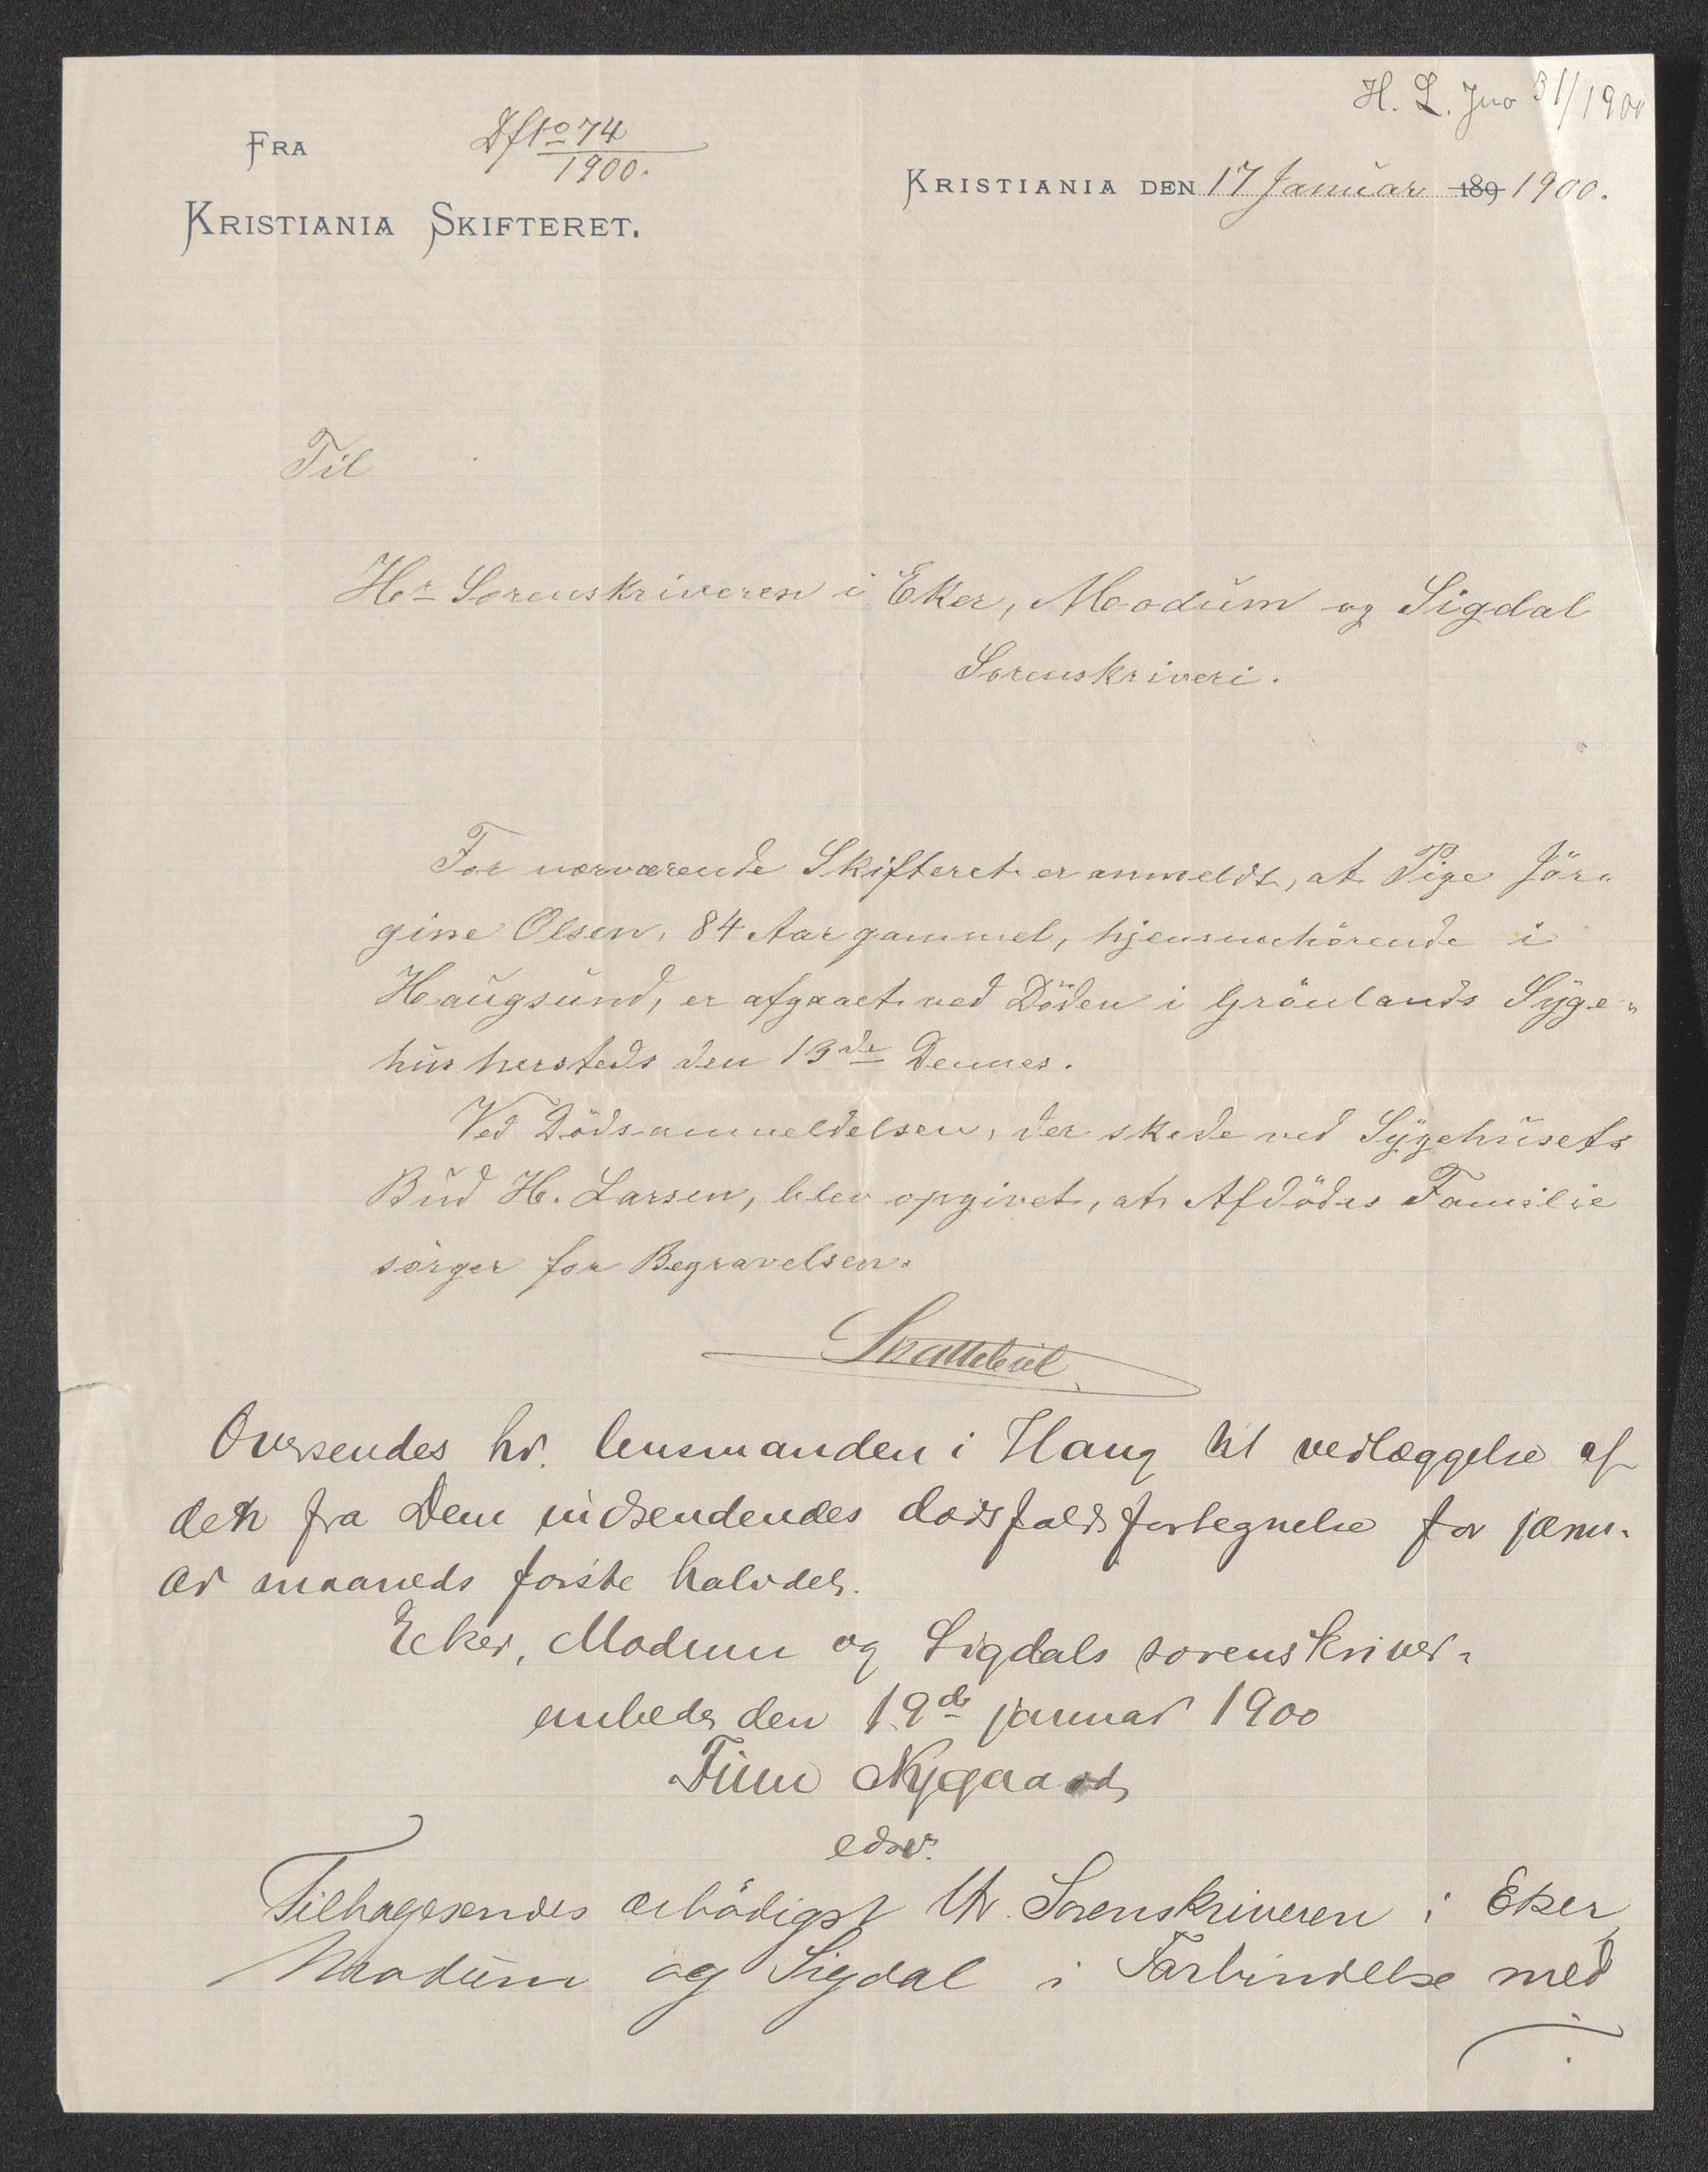 H. L. Jno 31/1900
Df No 74
1900.
FRA
KRISTIANIA SKIFTERET.
KRISTIANIA DEN 17 Januar 189 1900.
Til
Hr Sorenskriveren i Eker, Modum og Sigdal
Sorenskriveri.
For nærværende Skifteret er anmeldt, at Pige Jör„
gine Olsen, 84 Aar gammel, hjemmehörende i
Haugsund, er afgaaet ved Döden i Grönlands Syge„
hus hersteds den 13de Dennes.
Ved Dödsanmeldelsen, der skede ved Sygehusets
Bud H. Larsen, blev opgivet, at Afdödes Familie
sörger for Begravelsen.
Oversendes hr. lensmanden i Haug til vedlæggelse af
den fra Dem indsendendes dødsfaldsfortegnelse for janu-
ar maaneds første halvdel.
Eker, Modum og Sigdals sorenskriver-
embede den 19de januar 1900
Finn Nygaard
edsv.
Tilbagesendes ærbödigst Hr. Sorenskriveren i Eker,
Modum og Sigdal i Forbindelse med